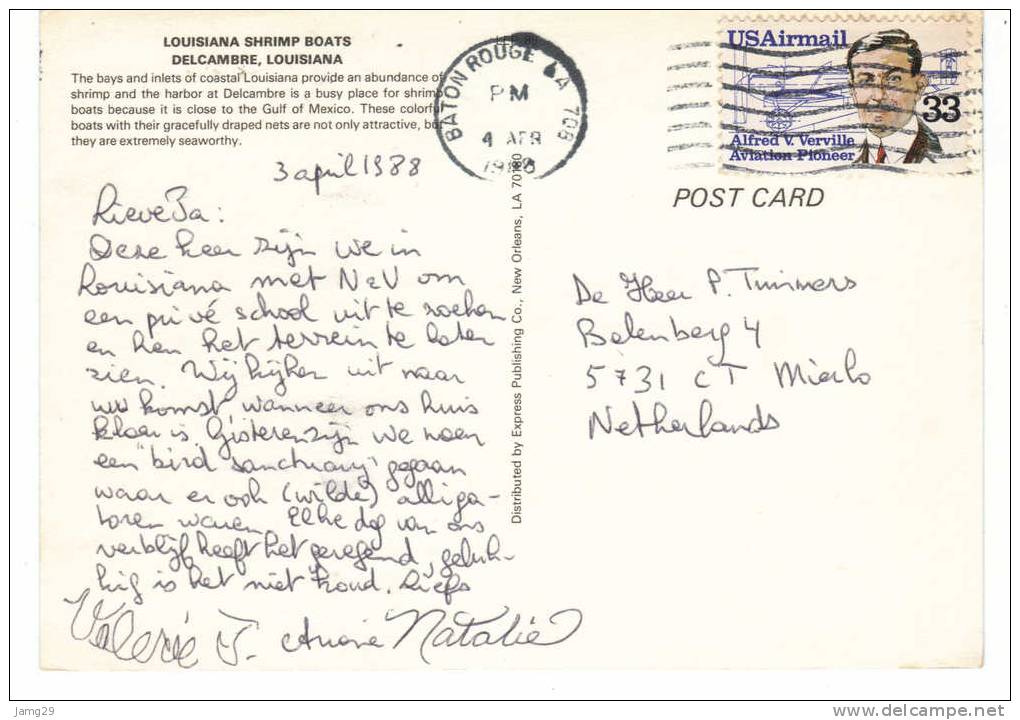 LOUISIANA SHRIMP BOATS
DELCAMBRE, LOUISIANA
The bays and inlets of coastal Louisiana provide an abundance of
shrimp and the harbor at Delcambre is a busy place for shrimp
boats because it is close to the Gulf of Mexico. These colorful
boats with their gracefully draped nets are not only attractive, but
they are extremely seaworthy.
BATON ROUGE LA 708
PM
4 APR
1988
USAirmail
33
Alfred V. Verville
Aviation Pioneer
POST CARD
3 april 1988
Lieve Pa:
Deze keer zijn we in
Louisiana met N&V om
een privé school uit te zoeken
en hen het terrein te laten
zien. Wij kijken uit naar
uw komst, wanneer ons huis
klaar is. Gisteren zijn we naar
een "bird sanctuary" gegaan
waar er ook (wilde) alliga-
toren waren. Elke dag van ons
verblijf heeft het geregend, geluk-
kig is het niet koud. Liefs
Valerie J. Natalie
Distributed by Express Publishing Co., New Orleans, LA 70180
De Heer P. Timmers
Belenberg 4
5731 CT Mierlo
Netherlands
Jamg29
www.delcampe.net